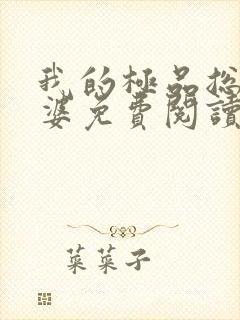 我的極品總
婆免費閱讀
菜菜子